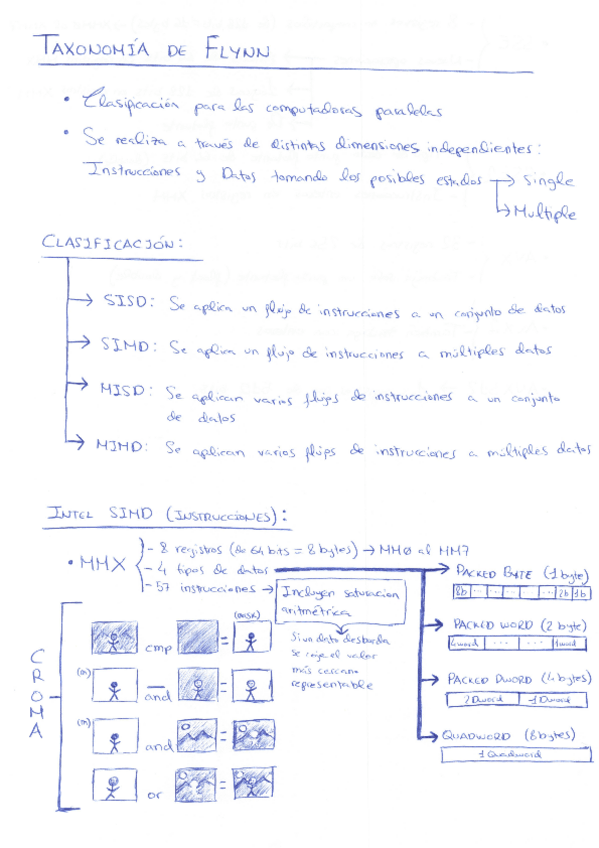 TAXONOMÍA DE FLYNN
• Clasificación para las computadoras paralelas
• Se realiza a través de distintas dimensiones independientes:
Instrucciones y Datos tomando los posibles estados → Single
→ Multiple
CLASIFICACIÓN:
→ SISD: Se aplica un flujo de instrucciones a un conjunto de datos
→ SIMD: Se aplica un flujo de instrucciones a múltiples datos
→ MISD: Se aplican varios flujos de instrucciones a un conjunto
de datos
→ MIMD: Se aplican varios flujos de instrucciones a múltiples datos
INTEL SIMD (INSTRUCCIONES):
• MMX
- 8 registros (de 64 bits = 8 bytes) → MM0 al MM7
- 4 tipos de datos
- 57 instrucciones →
Incluyen saturacion
aritmétrica
Si un dato desborda
se coje el valor
más cercano
representable
PACKED BYTE (1 byte)
8b ... ... ... ... ... 2b 1b
PACKED WORD (2 byte)
4word ... ... 1word
PACKED DWORD (4 bytes)
2Dword 1Dword
QUADWORD (8 bytes)
1 Quadword
CROMA
cmp = (mask)
(m) and =
(m) and =
or =